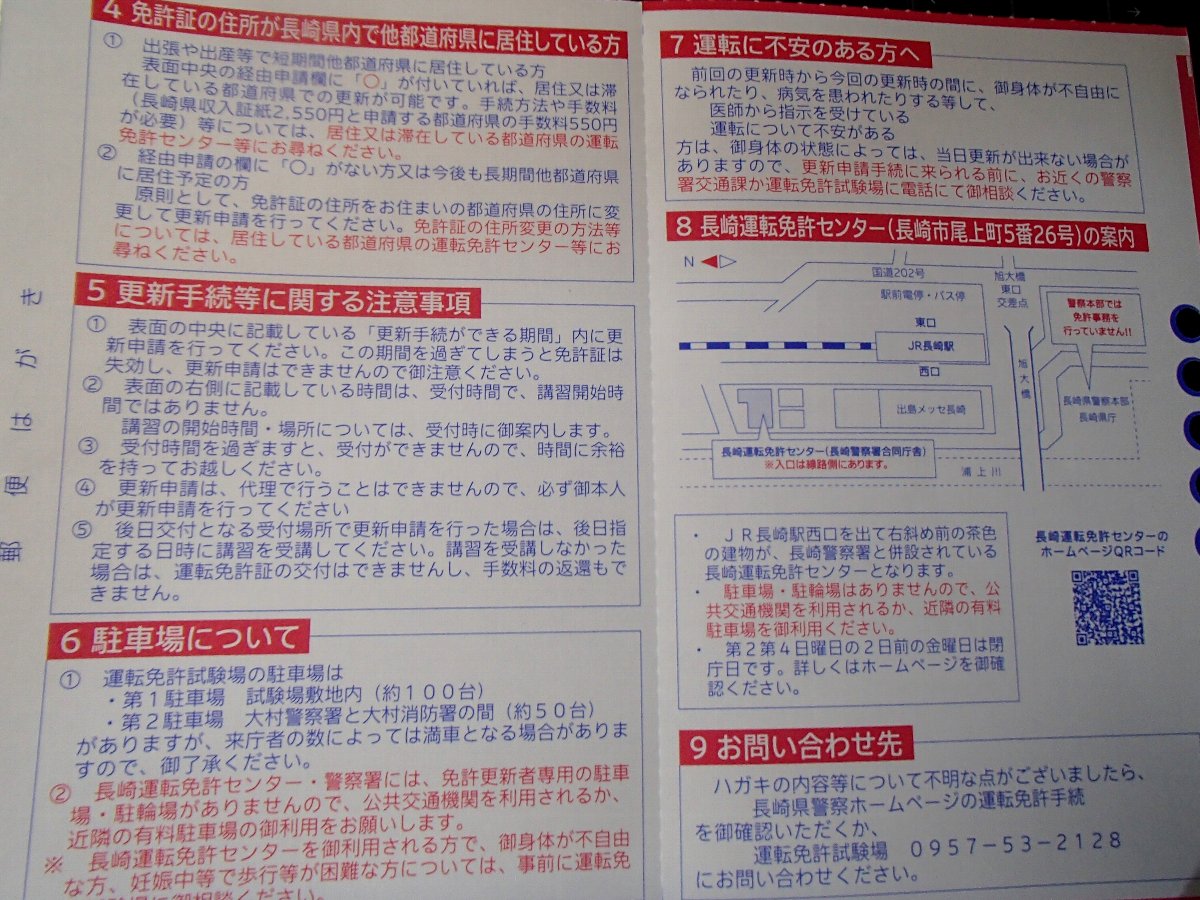 郵便はがき
4 免許証の住所が長崎県内で他都道府県に居住している方
① 出張や出産等で短期間他都道府県に居住している方
表面中央の経由申請欄に「〇」が付いていれば、居住又は滞
在している都道府県での更新が可能です。手続方法や手数料
（長崎県収入証紙2,550円と申請する都道府県の手数料550円
が必要）等については、居住又は滞在している都道府県の運転
免許センター等にお尋ねください。
② 経由申請の欄に「〇」がない方又は今後も長期間他都道府県
に居住予定の方
原則として、免許証の住所をお住まいの都道府県の住所に変
更して更新申請を行ってください。免許証の住所変更の方法等
については、居住している都道府県の運転免許センター等にお
尋ねください。
5 更新手続等に関する注意事項
① 表面の中央に記載している「更新手続ができる期間」内に更
新申請を行ってください。この期間を過ぎてしまうと免許証は
失効し、更新申請はできませんので御注意ください。
② 表面の右側に記載している時間は、受付時間で、講習開始時
間ではありません。
講習の開始時間・場所については、受付時に御案内します。
③ 受付時間を過ぎますと、受付ができませんので、時間に余裕
を持ってお越しください。
④ 更新申請は、代理で行うことはできませんので、必ず御本人
が更新申請を行ってください
⑤ 後日交付となる受付場所で更新申請を行った場合は、後日指
定する日時に講習を受講してください。講習を受講しなかった
場合は、運転免許証の交付はできませんし、手数料の返還もで
きません。
6 駐車場について
① 運転免許試験場の駐車場は
・第１駐車場 試験場敷地内（約１００台）
・第２駐車場 大村警察署と大村消防署の間（約５０台）
がありますが、来庁者の数によっては満車となる場合がありま
すので、御了承ください。
② 長崎運転免許センター・警察署には、免許更新者専用の駐車
場・駐輪場がありませんので、公共交通機関を利用されるか、
近隣の有料駐車場の御利用をお願いします。
※ 長崎運転免許センターを御利用される方で、御身体が不自由
な方、妊娠中等で歩行等が困難な方については、事前に運転免
に御相談ください。
7 運転に不安のある方へ
前回の更新時から今回の更新時の間に、御身体が不自由に
なられたり、病気を患われたりする等して、
医師から指示を受けている
運転について不安がある
方は、御身体の状態によっては、当日更新が出来ない場合が
ありますので、更新申請手続に来られる前に、お近くの警察
署交通課か運転免許試験場に電話にて御相談ください。
8 長崎運転免許センター（長崎市尾上町5番26号）の案内
N
国道202号
旭大橋
東口
交差点
駅前電停・バス停
警察本部では
免許事務を
行っていません!!
東口
JR長崎駅
西口
旭大橋
出島メッセ長崎
長崎県警察本部
長崎県庁
長崎運転免許センター（長崎警察署合同庁舎）
※入口は線路側にあります。
浦上川
・ ＪＲ長崎駅西口を出て右斜め前の茶色
の建物が、長崎警察署と併設されている
長崎運転免許センターとなります。
・ 駐車場・駐輪場はありませんので、公
共交通機関を利用されるか、近隣の有料
駐車場を御利用ください。
・ 第２第４日曜日の２日前の金曜日は閉
庁日です。詳しくはホームページを御確
認ください。
長崎運転免許センターの
ホームページQRコード
9 お問い合わせ先
ハガキの内容等について不明な点がございましたら、
長崎県警察ホームページの運転免許手続
を御確認いただくか、
運転免許試験場 ０９５７－５３－２１２８
にお問い合わせください。